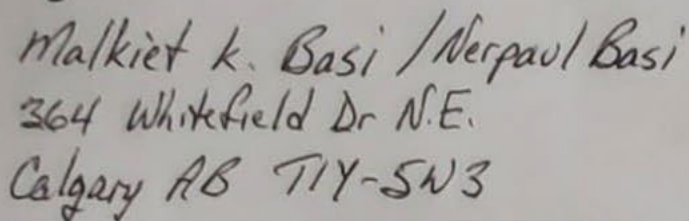 Malkiet k. Basi / Nerpaul Basi
364 Whitefield Dr N.E.
Calgary AB T1Y-5W3